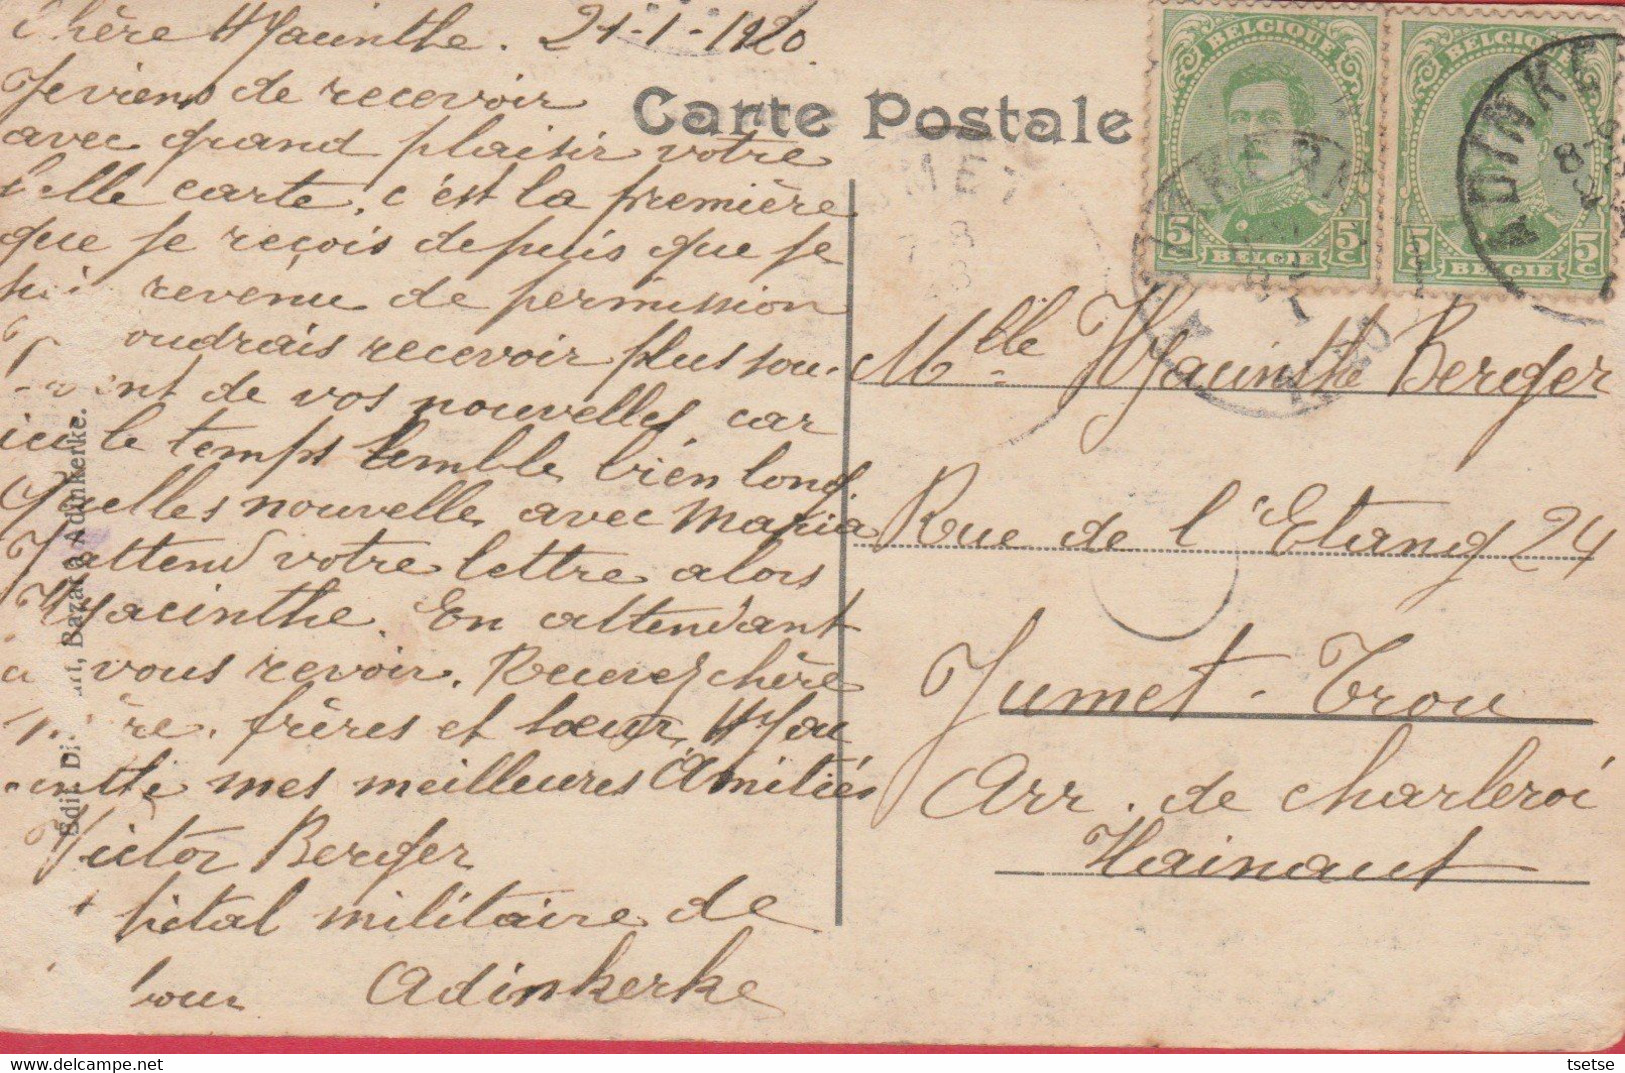 Chère Hyacinthe. 21-1-1920
Je viens de recevoir
avec grand plaisir votre
belle carte. c'est la première
que je reçois depuis que je
suis revenu de permission
voudrais recevoir plus sou-
vent de vos nouvelles car
ici le temps semble bien long
Quelles nouvelle avec Maria
J'attend votre lettre alors
Hyacinthe. En attendant
a vous revoir. Recevez chère
mère. frères et sœur, Hyac
inthe mes meilleures Amitiés
Victor Berger
pital militaire de
Adinkerke
Bazar à Adinkerke.
Carte Postale
BELGIQUE
5 C 5 C
BELGIE
BELGIQUE
5 C 5 C
BELGIE
ADINKERKE
Mlle Hyacinthe Berger
Rue de l'Etang 24
Jumet - Trou
Arr. de Charleroi
Hainaut
tsetse